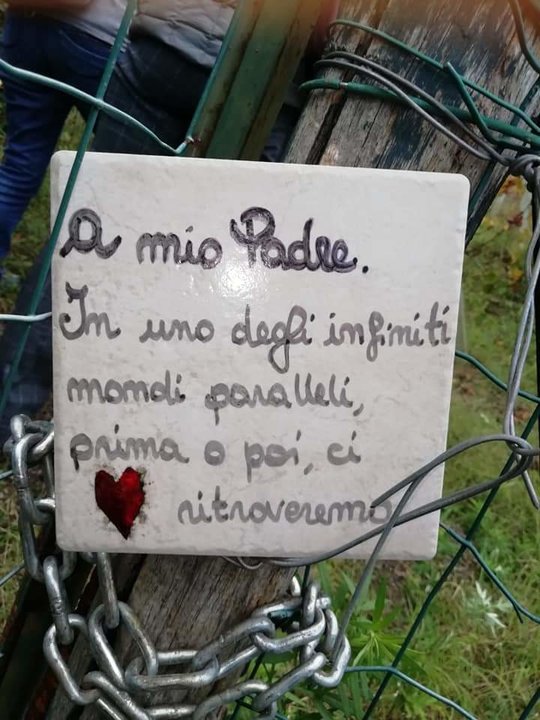 A mio Padre.
In uno degli infiniti
mondi paralleli,
prima o poi, ci
ritroveremo